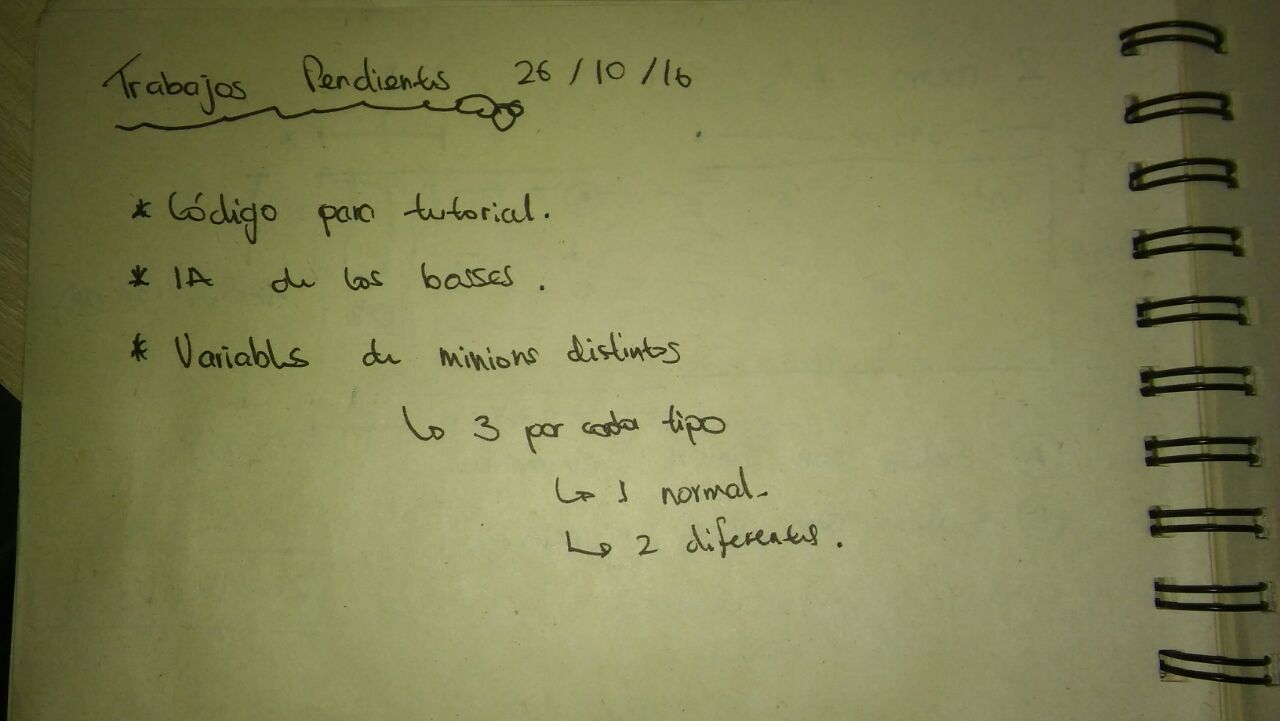 Trabajos Pendientes 26/10/16
* Código para tutorial.
* IA de los bosses.
* Variables de minions distintos
↳ 3 por cada tipo
↳ 1 normal.
↳ 2 diferentes.